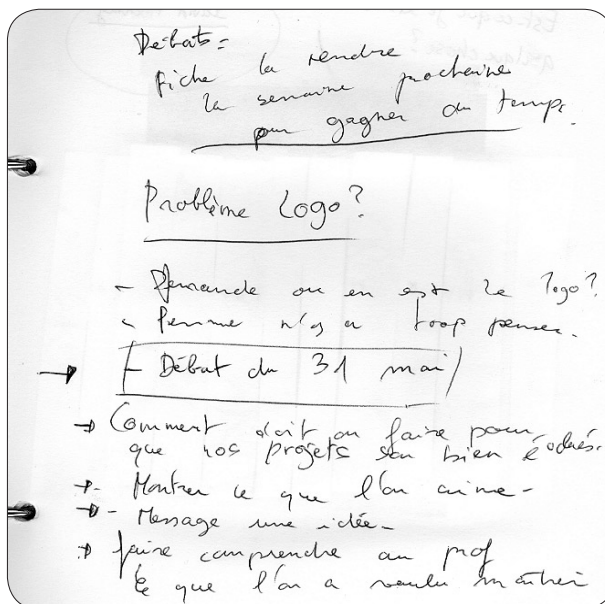 Débats =
Fiche la rendre
la semaine prochaine
pour gagner du temps.
Problème Logo?
- Demande ou en est le logo?
- n'y a trop penser.
[- Début du 31 mai]
→ Comment doit on faire pour
que nos projets son bien
→ - Montrer ce que l'on aime -
→ - Message une idée -
→ faire comprendre au prof
ce que l'on a voulu montrer